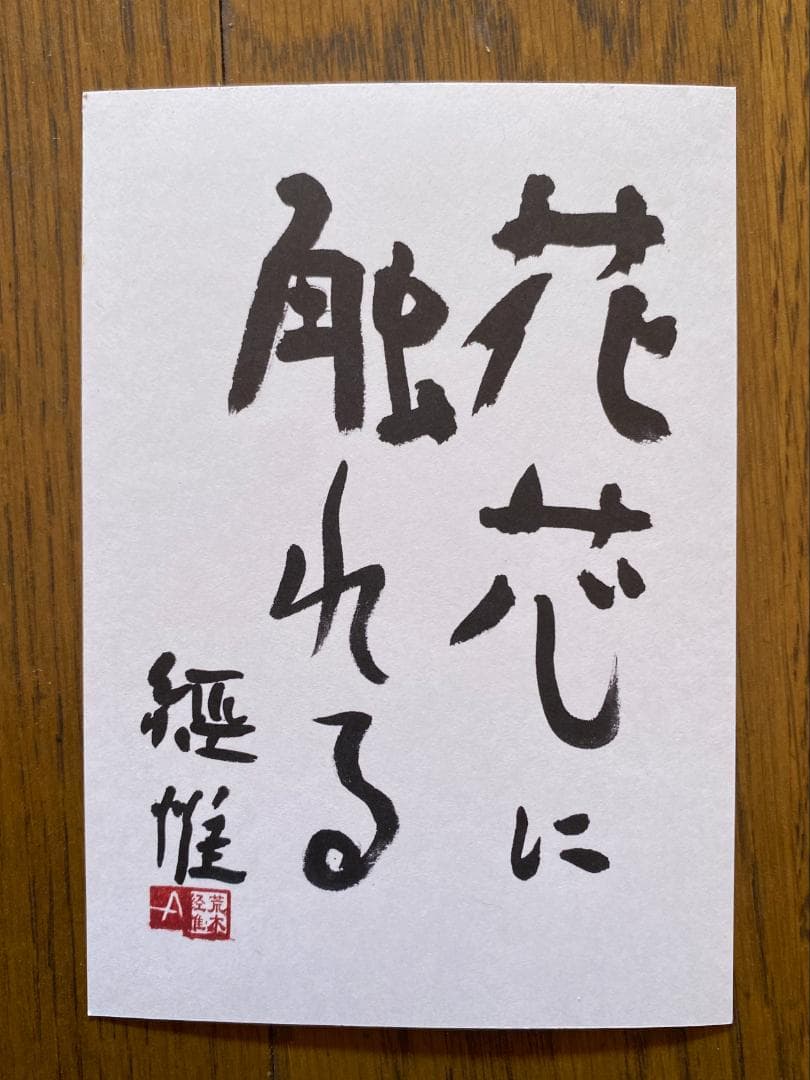 花芯に
触れる
經惟
A
荒木
经惟